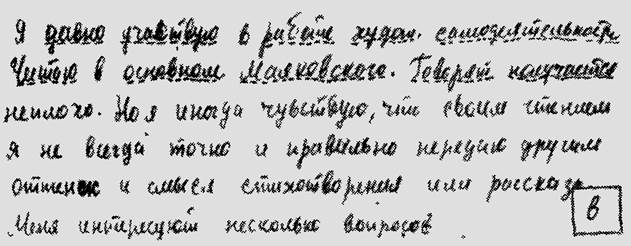 Я давно участвую в работе худож. самодеятельности
Читаю в основном Маяковского. Говорят получается
неплохо. Но я иногда чувствую, что своим чтением
я не всегда точно и правильно передаю другим
оттенок и смысл стихотворения или рассказа
Меня интересуют несколько вопросов
в